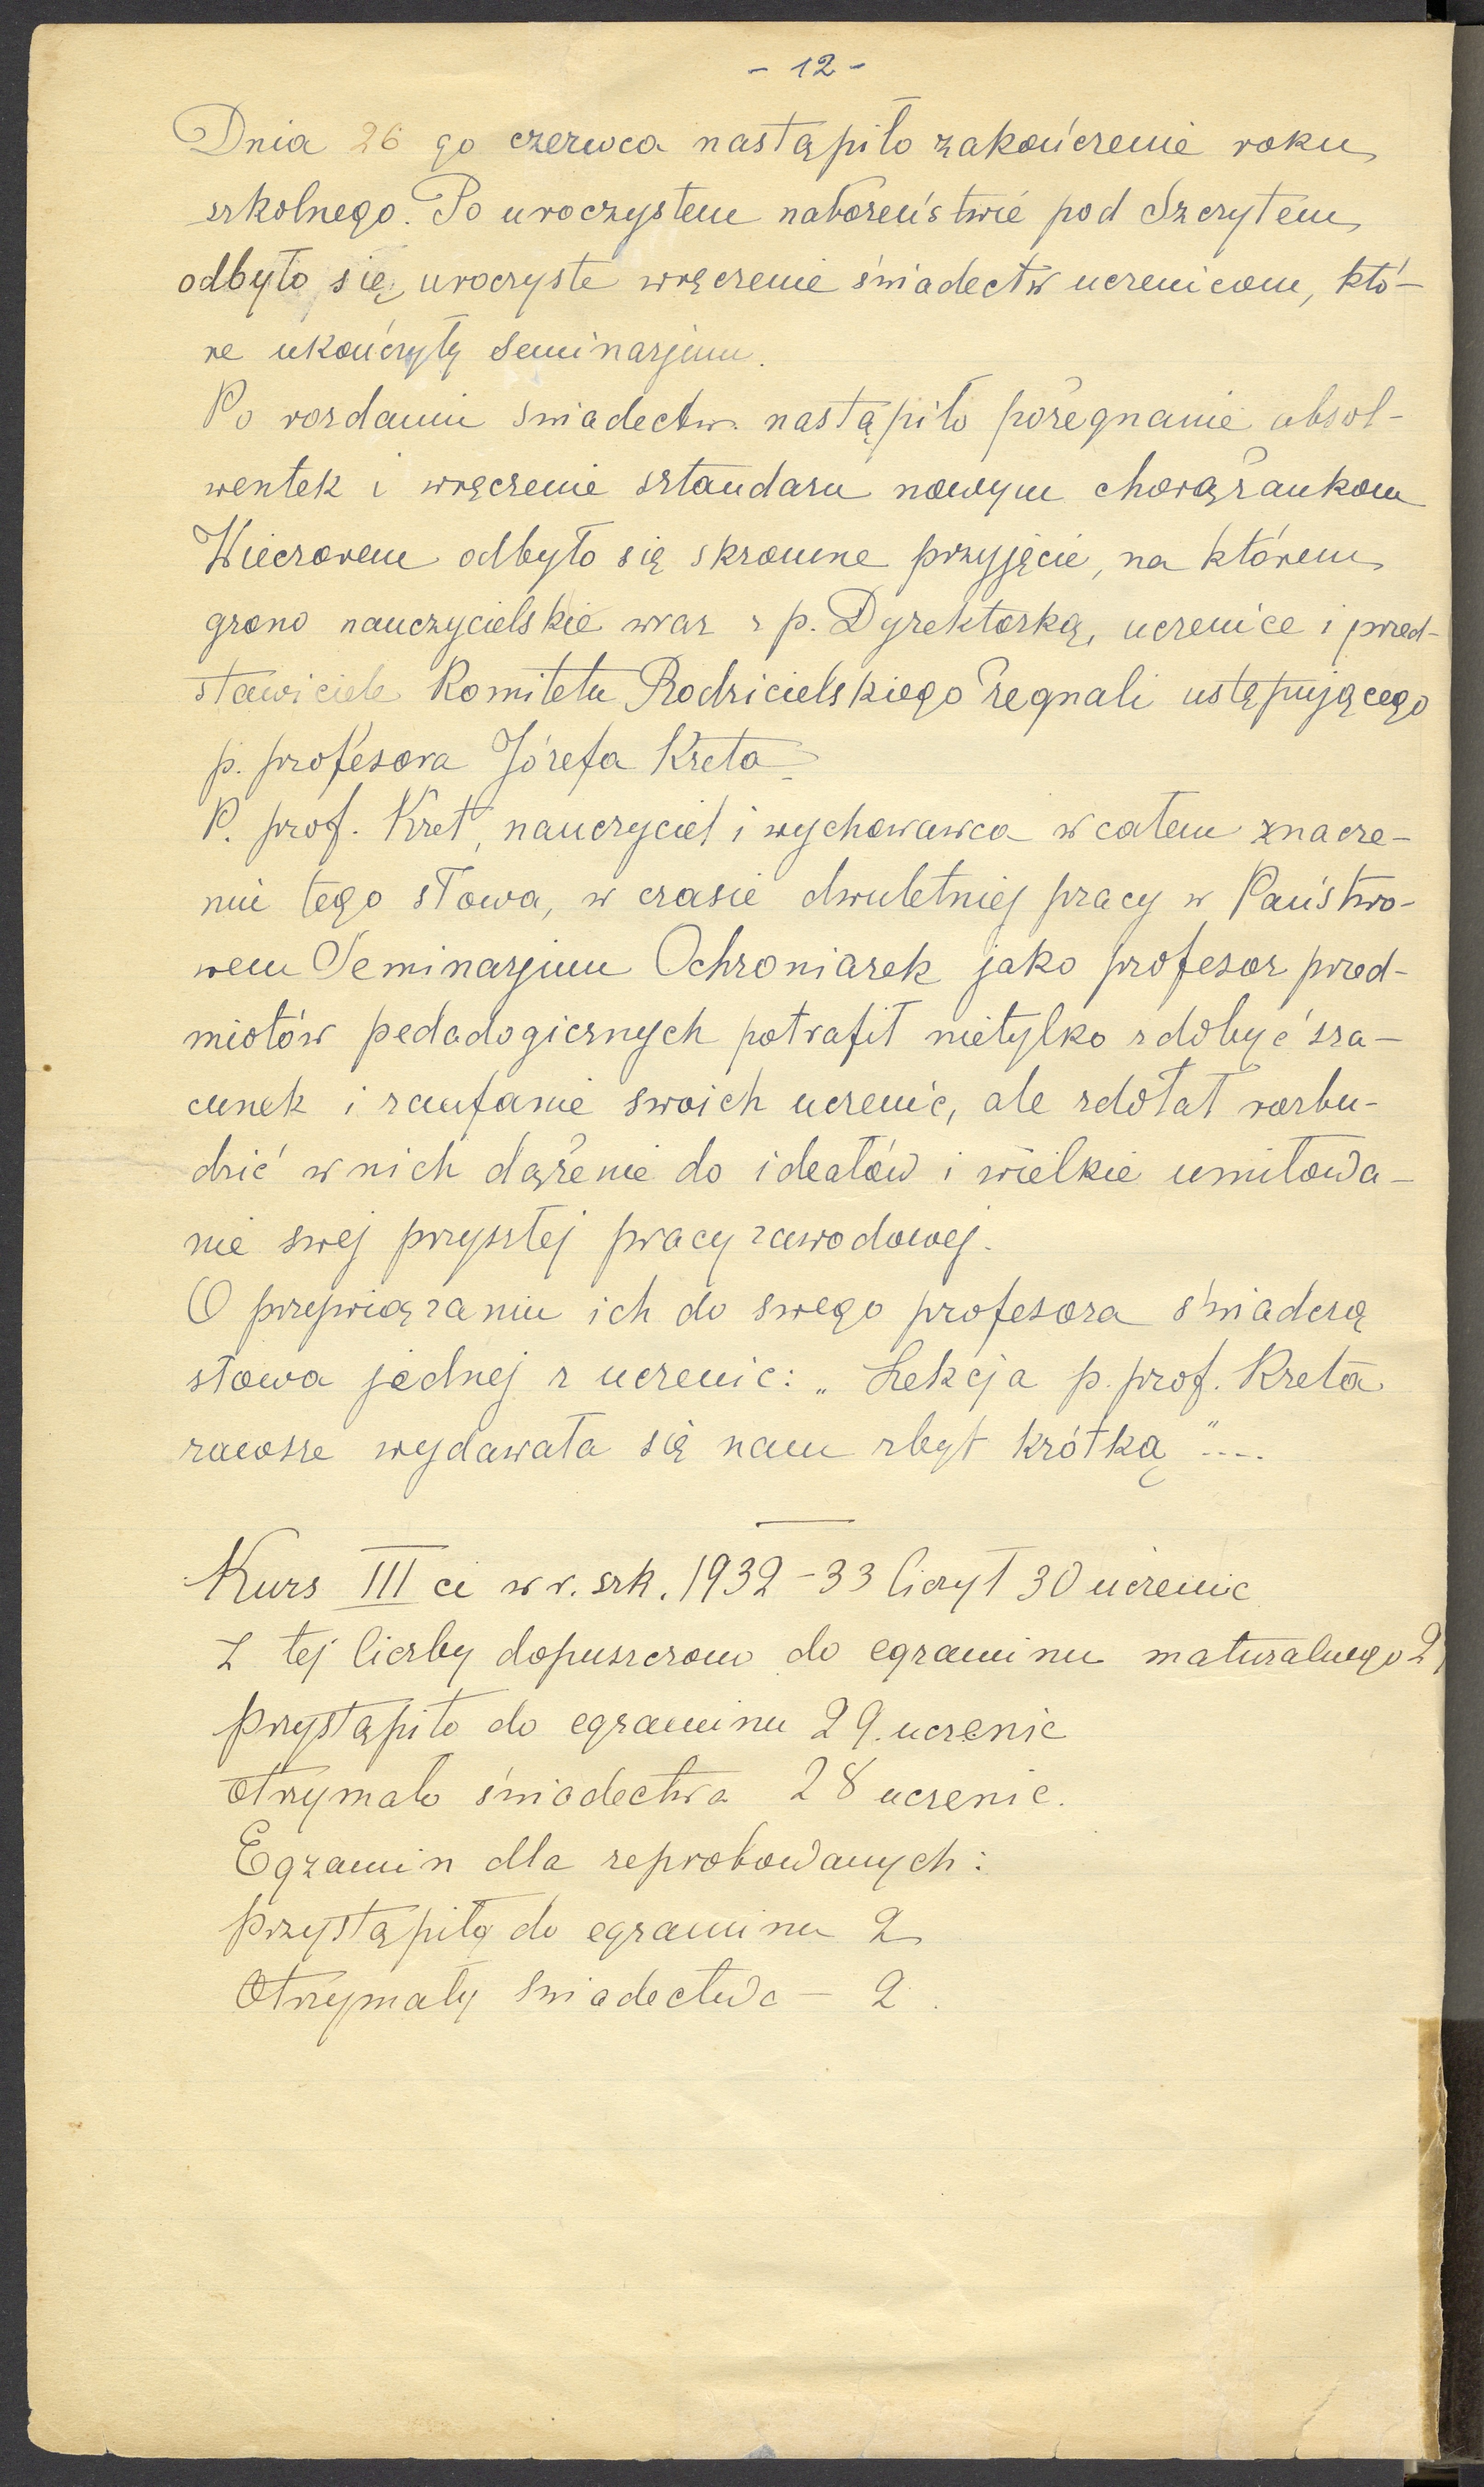 - 12 -
Dnia 26 go czerwca nastąpiło zakończenie roku
szkolnego. Po uroczystem nabożeństwie pod Szczytem
odbyło się uroczyste wręczenie świadectw uczenicom, któ-
re ukończyły Seminarjum.
Po rozdaniu świadectw nastąpiło pożegnanie absol-
wentek i wręczenie sztandaru nowym chorążankom
Wieczorem odbyło się skromne przyjęcie, na którem
grono nauczycielskie wraz z p. Dyrektorką, uczenice i przed-
stawiciele Komitetu Rodzicielskiego żegnali ustępującego
p. profesora Józefa Kreta
P. prof. Kret, nauczyciel i wychowawca w całem znacze-
niu tego słowa, w czasie dwuletniej pracy w Państwo-
wem Seminarjum Ochroniarek jako profesor przed-
miotów pedadogicznych potrafił nietylko zdobyć sza-
cunek i zaufanie swoich uczenic, ale zdołał rozbu-
dzić w nich dążenie do ideałów i wielkie umiłowa-
nie swej przyszłej pracy zawodowej.
O przywiązaniu ich do swego profesora świadczą
słowa jednej z uczenic: „Lekcja p. prof. Kreta
zawsze wydawała się nam zbyt krótką"....
Kurs III ci w r. szk. 1932-33 liczył 30 uczenic
Z tej liczby dopuszczono do egzaminu maturalnego
przystąpiło do egzaminu 29. uczenic
otrzymało świadectwa 28 uczenic.
Egzamin dla reprobowanych:
przystąpiły do egzaminu 2
Otrzymały świadectwa - 2.